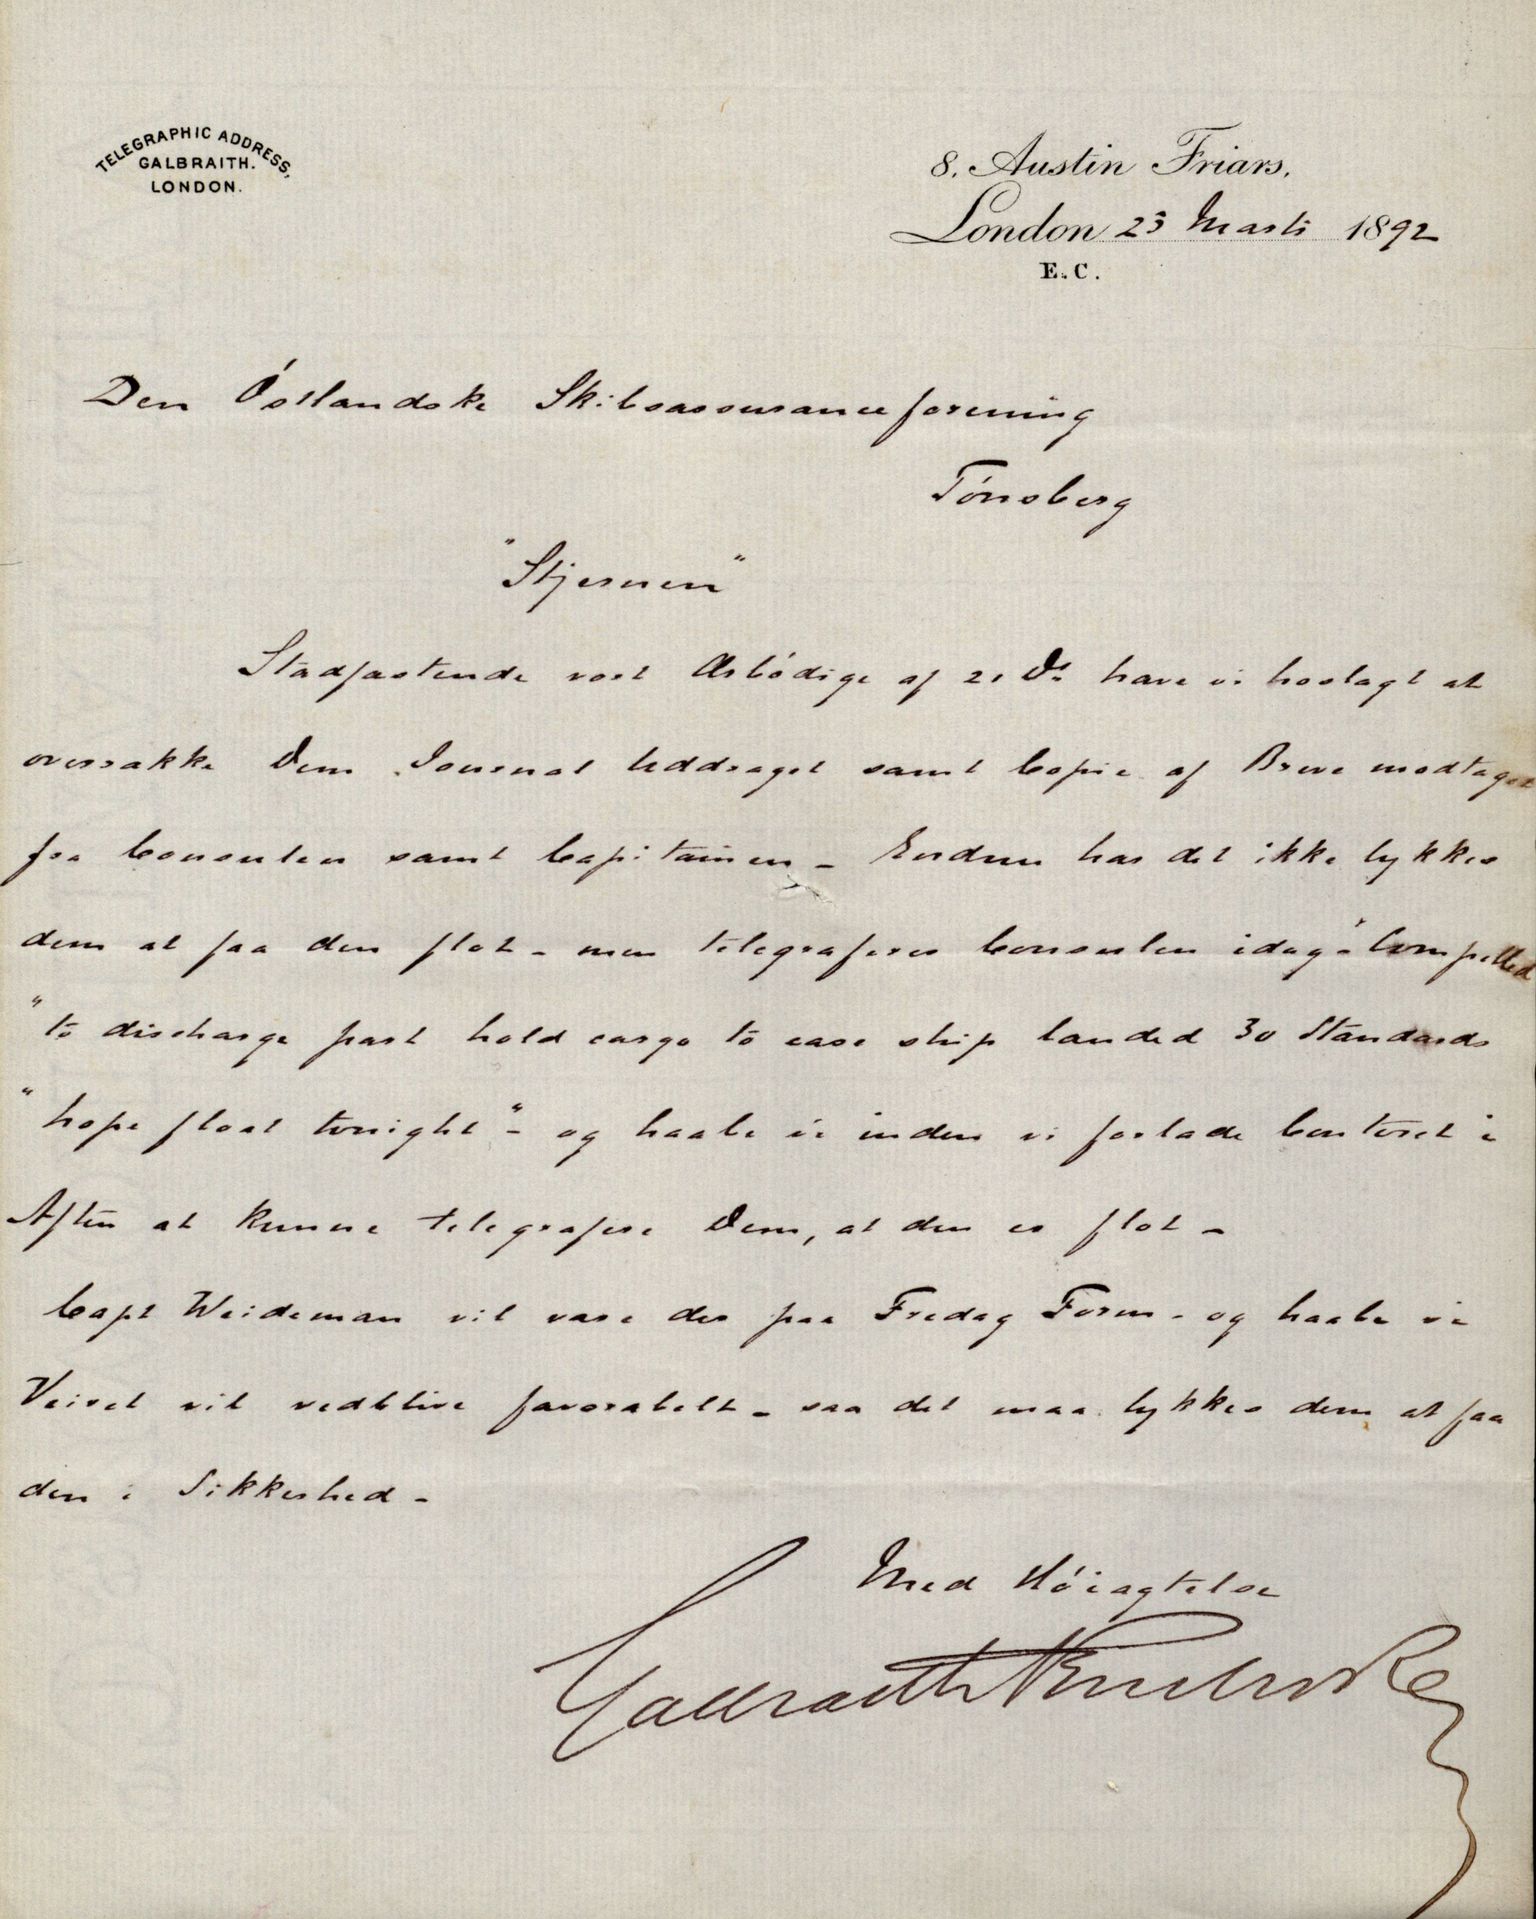 TELEGRAPHIC ADDRESS,
GALBRAITH.
LONDON.
8. Austin Friars.
London 23 Marts 1892
E.C.
Den Östlandske Skibsassuranceforening
Tönsberg
"Stjernen"
Stadfæstende vort Ærbödige af 21 Ds. have vi hoslagt at
overrække Dem Journal Uddraget samt Copie af Breve modtaget
fra Consulen samt Capitainen - Endnu har det ikke lykkes
dem at faa den flot - men telegraferer Consulen idag "Compelled
"to discharge part hold cargo to ease ship landed 30 Standards
"hope float tonight" - og haabe vi inden vi forlade Contoret i
Aften at kunne telegrafere Dem, at den er flot -
Capt Weideman vil være der paa Fredag Form - og haabe vi
Veiret vil vedblive favorabelt - saa det maa lykkes dem at faa
den i Sikkerhed -
Med Höiagtelse
Galbraith